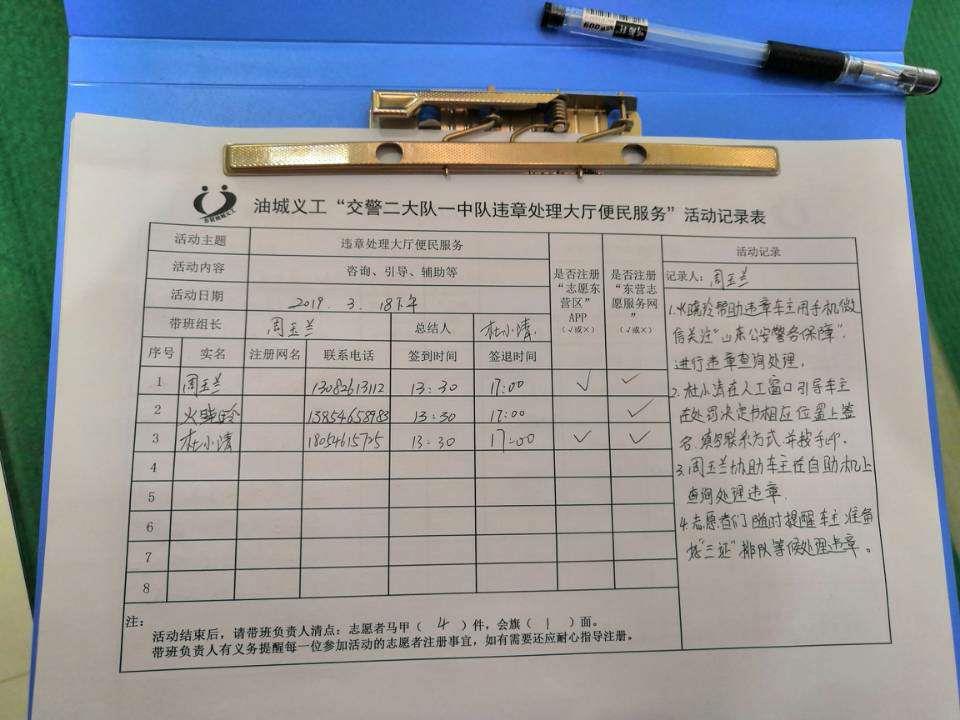 油城义工“交警二大队一中队违章处理大厅便民服务”活动记录表
活动主题 违章处理大厅便民服务
活动内容 咨询、引导、辅助等
活动日期 2019. 3. 18下午
带班组长 周玉兰 总结人 杜小涛
是否注册“志愿东营区”APP（√或×）
是否注册“东营志愿服务网”（√或×）
序号 实名 注册网名 联系电话 签到时间 签退时间
1 周玉兰 13082613112 13:30 17:00 √ √
2 火晓玲 13854658783 13:30 17:00 √
3 杜小涛 18054615725 13:30 17:00 √ √
4
5
6
7
8
活动记录
记录人：周玉兰
1.火晓玲帮助违章车主用手机微
信关注“山东公安警务保障”
进行违章查询处理.
2.杜小涛在人工窗口引导车主
在处罚决定书相应位置上签
名.填写联系方式.并按手印.
3.周玉兰协助车主在自助机上
查询处理违章.
4.志愿者们随时提醒车主准备
好“三证”排队等候处理违章。
注：
活动结束后，请带班负责人清点：志愿者马甲（ 4 ）件，会旗（ 1 ）面。
带班负责人有义务提醒每一位参加活动的志愿者注册事宜，如有需要还应耐心指导注册。